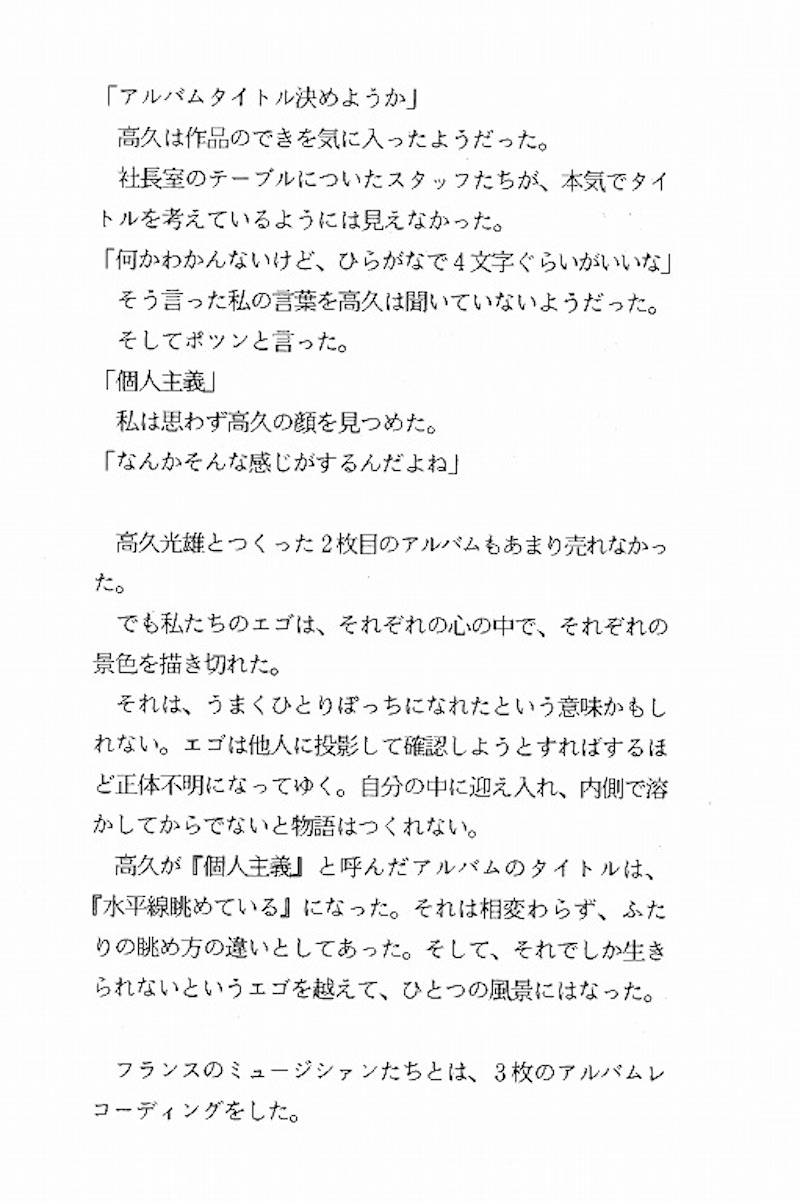 「アルバムタイトル決めようか」
高久は作品のできを気に入ったようだった。
社長室のテーブルについたスタッフたちが、本気でタイ
トルを考えているようには見えなかった。
「何かわかんないけど、ひらがなで4文字ぐらいがいいな」
そう言った私の言葉を高久は聞いていないようだった。
そしてポツンと言った。
「個人主義」
私は思わず高久の顔を見つめた。
「なんかそんな感じがするんだよね」
高久光雄とつくった2枚目のアルバムもあまり売れなかっ
た。
でも私たちのエゴは、それぞれの心の中で、それぞれの
景色を描き切れた。
それは、うまくひとりぼっちになれたという意味かもし
れない。エゴは他人に投影して確認しようとすればするほ
ど正体不明になってゆく。自分の中に迎え入れ、内側で溶
かしてからでないと物語はつくれない。
高久が『個人主義』と呼んだアルバムのタイトルは、
『水平線眺めている』になった。それは相変わらず、ふた
りの眺め方の違いとしてあった。そして、それでしか生き
られないというエゴを越えて、ひとつの風景にはなった。
フランスのミュージシァンたちとは、3枚のアルバムレ
コーディングをした。